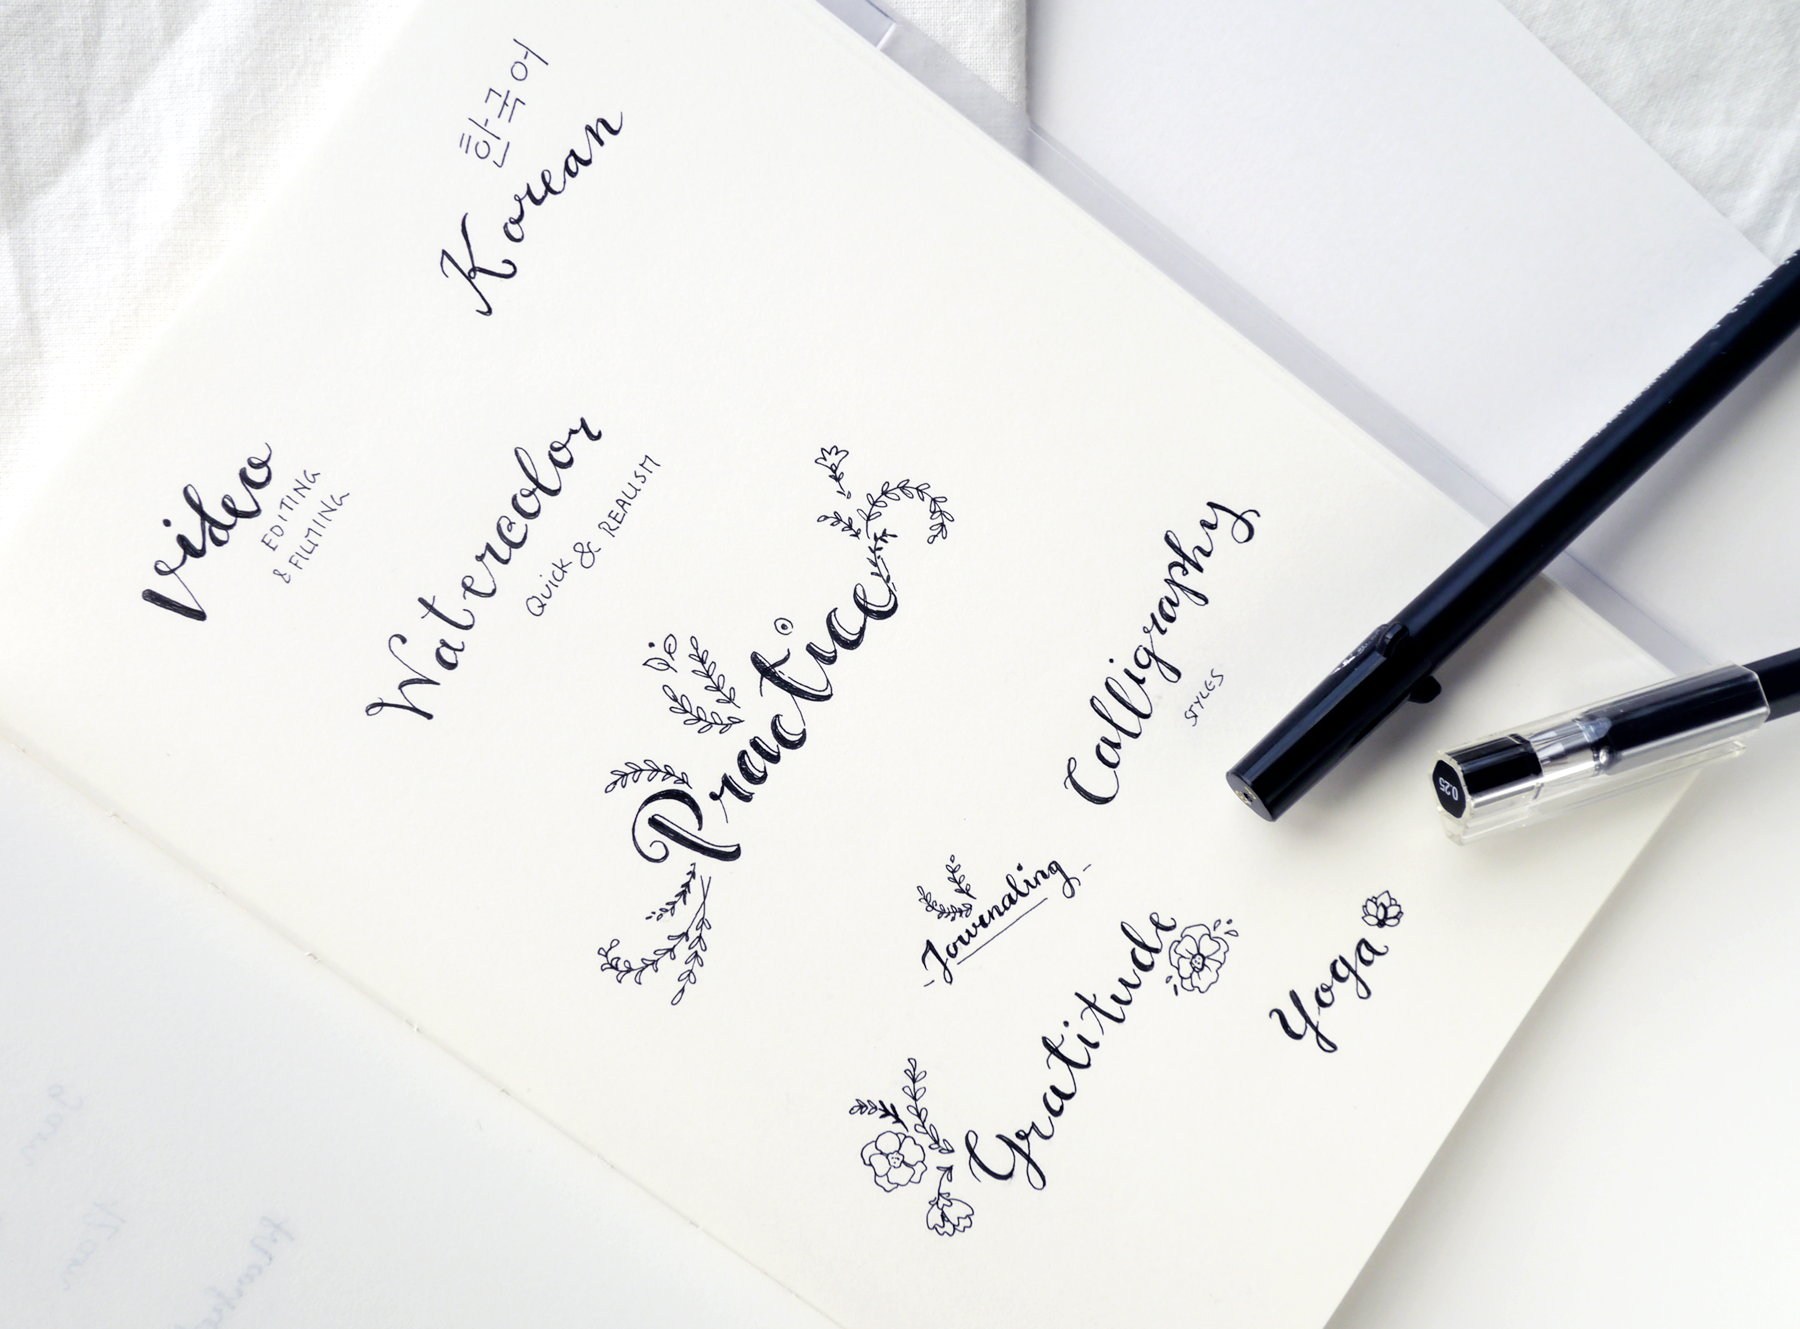 한국어
Korean
Video
EDITING
& FILMING
Watercolor
Quick & REALISM
Practice
Calligraphy
STYLES
Journaling
Gratitude
Yoga
0.25